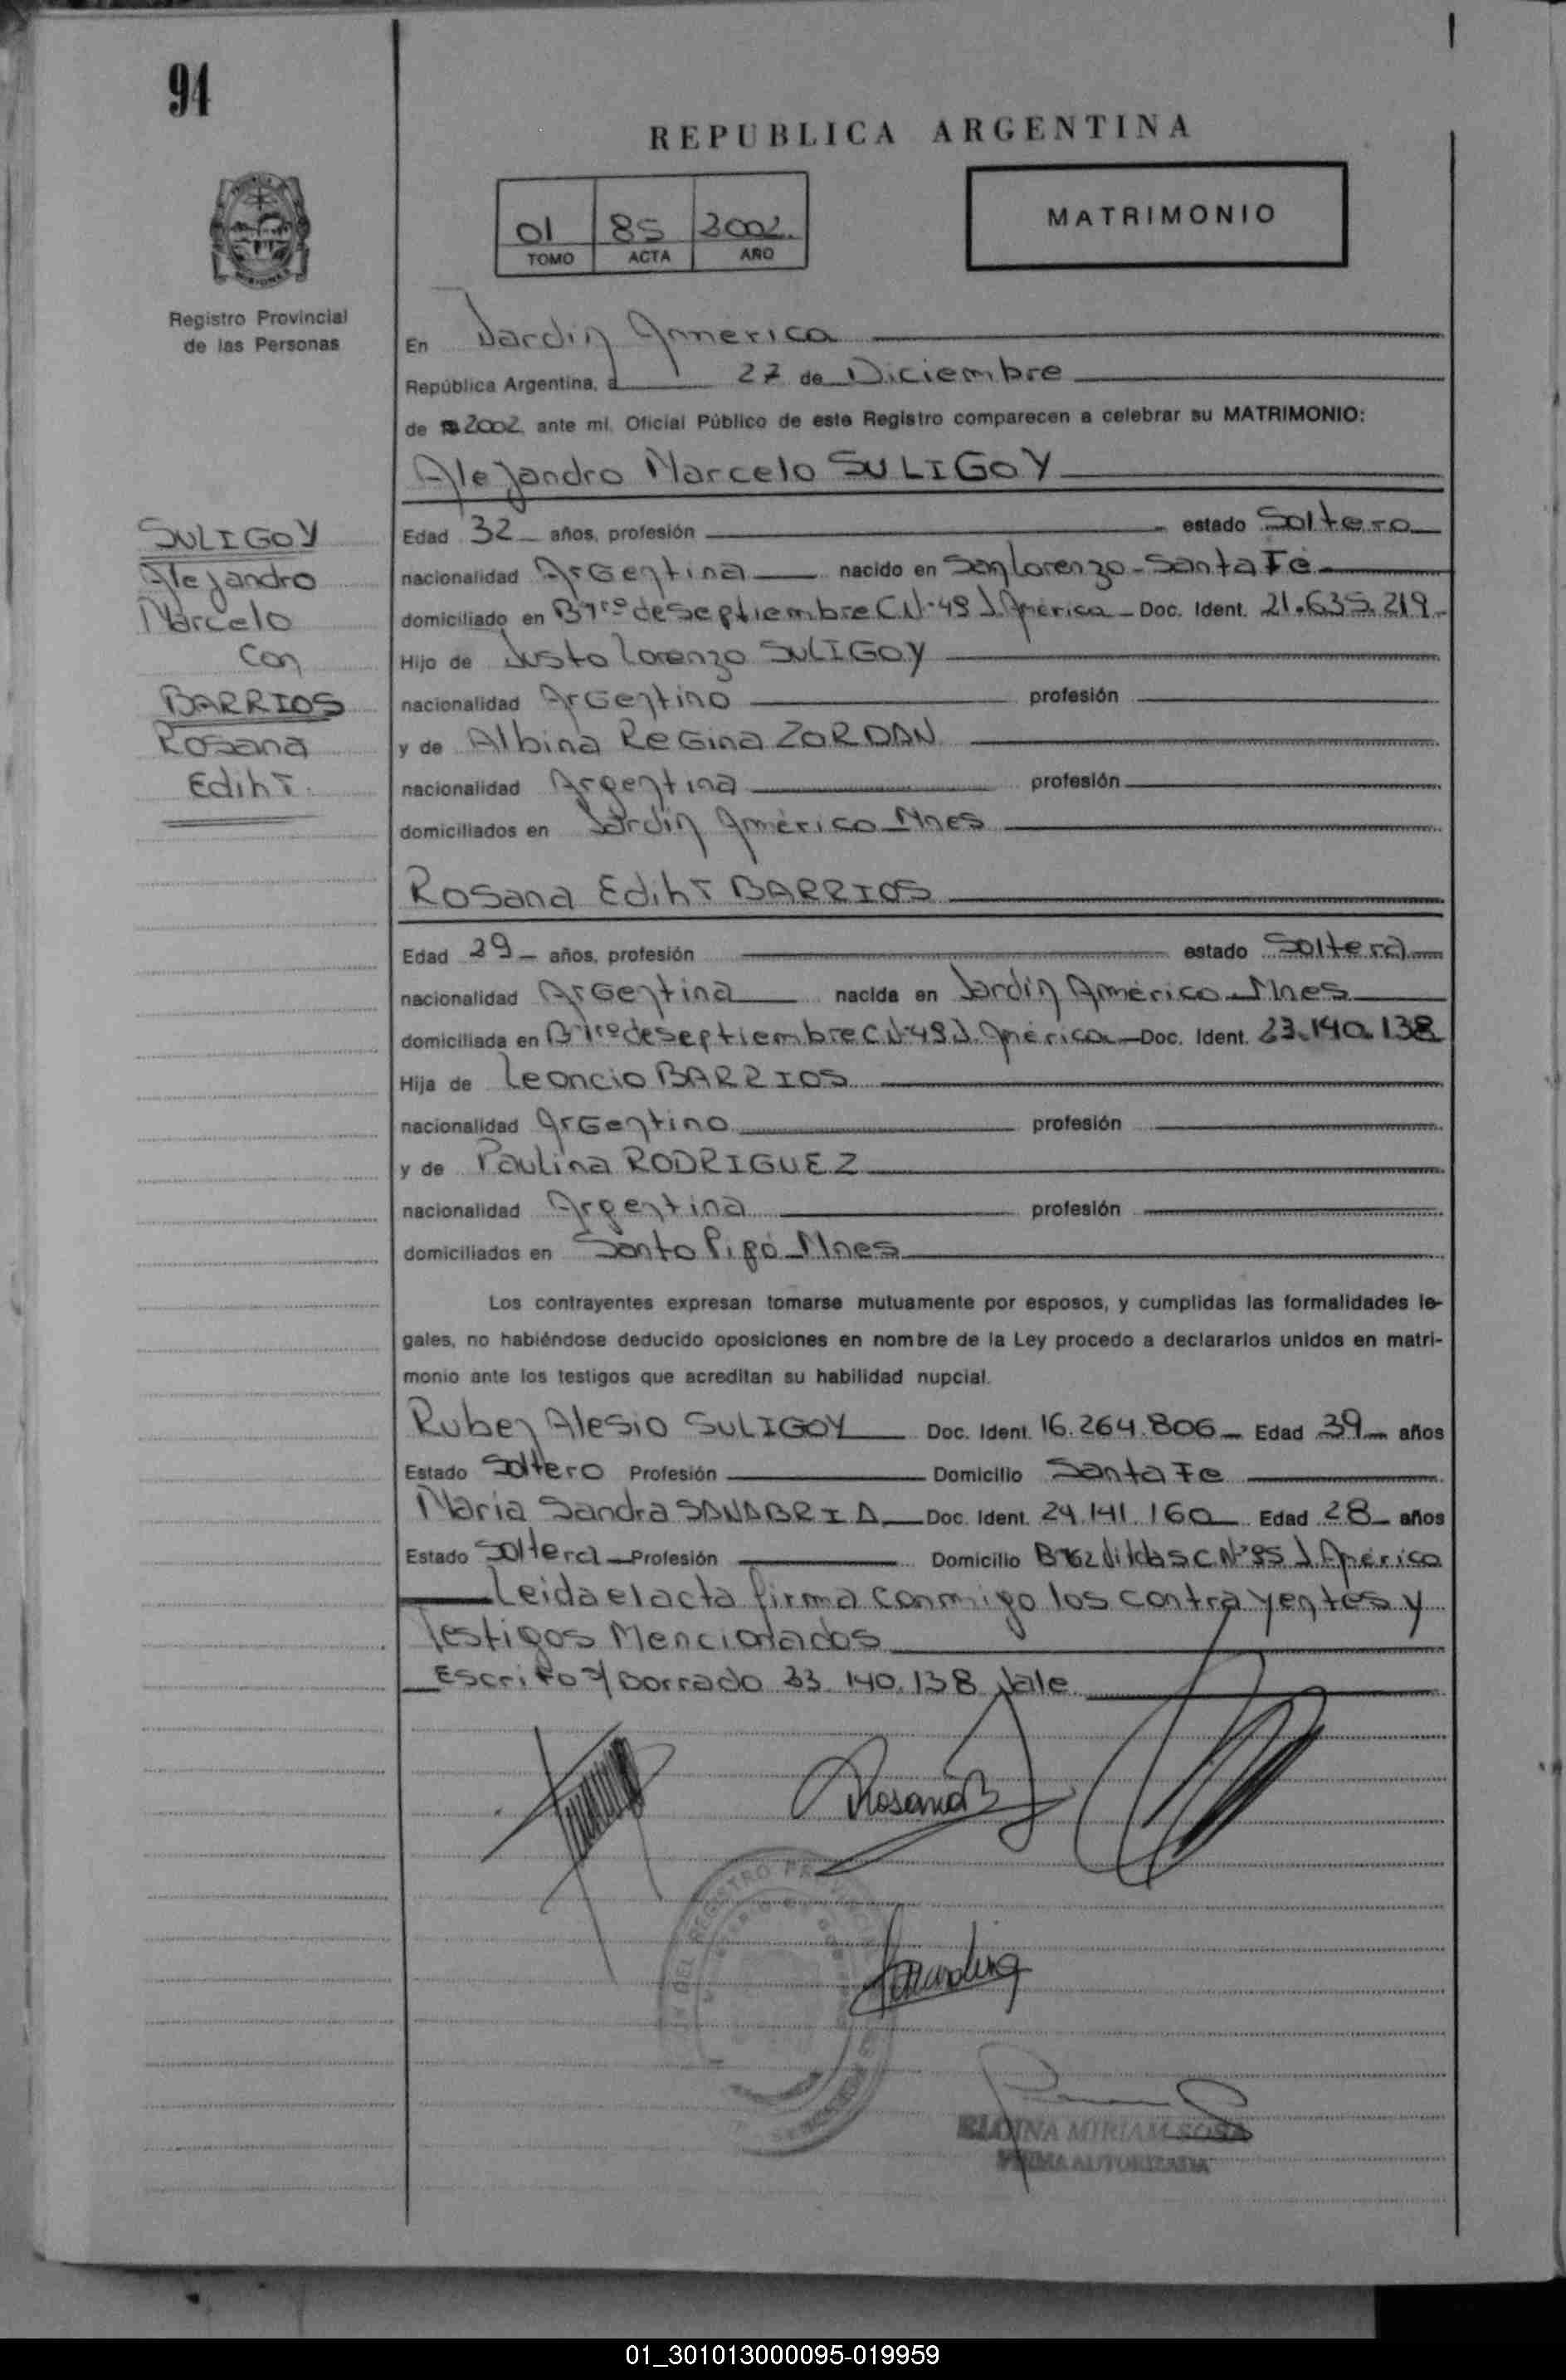 94
REPUBLICA ARGENTINA
01 85 2002.
TOMO ACTA AÑO
MATRIMONIO
Registro Provincial
de las Personas
En Jardín América
República Argentina, a 27 de Diciembre
de 2002 ante mi, Oficial Público de este Registro comparecen a celebrar su MATRIMONIO:
Alejandro Marcelo SULIGOY
SULIGOY
Alejandro
Marcelo
Con
BARRIOS
Rosana
EdihT.
Edad 32 años, profesión estado Soltero
nacionalidad Argentina nacido en San Lorenzo - Santa Fé
domiciliado en B° 1ro de Septiembre C N° 49 J. América - Doc. Ident. 21.635.219
Hijo de Justo Lorenzo SULIGOY
nacionalidad Argentino profesión
y de Albina Regina ZORDAN
nacionalidad Argentina profesión
domiciliados en Jardín América Mnes
Rosana EdihT BARRIOS
Edad 29 años, profesión estado Soltera
nacionalidad Argentina nacida en Jardín América - Mnes
domiciliada en B° 1ro de septiembre C N° 49 J. América - Doc. Ident. 23.140.138
Hija de Leoncio BARRIOS
nacionalidad Argentino profesión
y de Paulina RODRIGUEZ
nacionalidad Argentina profesión
domiciliados en Santo Pipó Mnes
Los contrayentes expresan tomarse mutuamente por esposos, y cumplidas las formalidades le-
gales, no habiéndose deducido oposiciones en nombre de la Ley procedo a declararlos unidos en matri-
monio ante los testigos que acreditan su habilidad nupcial.
Ruben Alesio SULIGOY Doc. Ident. 16.264.806 Edad 39 años
Estado Soltero Profesión Domicilio Santa Fe
María Sandra SANABRIA Doc. Ident. 24.141.160 Edad 28 años
Estado Soltera Profesión Domicilio C N° 95 J. América
Leida el acta firma conmigo los contrayentes y
Testigos Mencionados
Escrito s/ borrado 23.140.138 Vale
Rosana B
MIRIAM SOSA
FIRMA AUTORIZADA
01_301013000095-019959